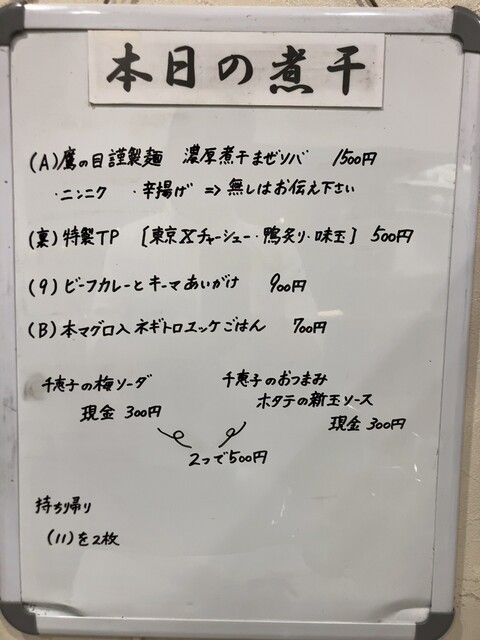 本日の煮干
(A)鷹の目謹製麺 濃厚煮干まぜソバ 1500円
・ニンニク ・辛揚げ ⇒ 無しはお伝え下さい
(裏)特製TP [東京Xチャーシュー・鴨炙り・味玉] 500円
(9)ビーフカレーとキーマあいがけ 900円
(B)本マグロ入ネギトロユッケごはん 700円
千恵子の梅ソーダ
現金 300円
千恵子のおつまみ
ホタテの新玉ソース
現金 300円
2つで500円
持ち帰り
(11)を2枚